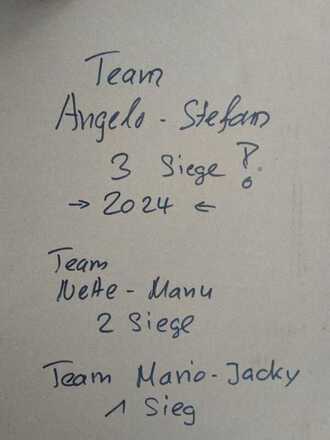 Team
Angelo - Stefan
3 Siege ?
→ 2024 ←
Team
Nette - Manu
2 Siege
Team Mario-Jacky
1 Sieg